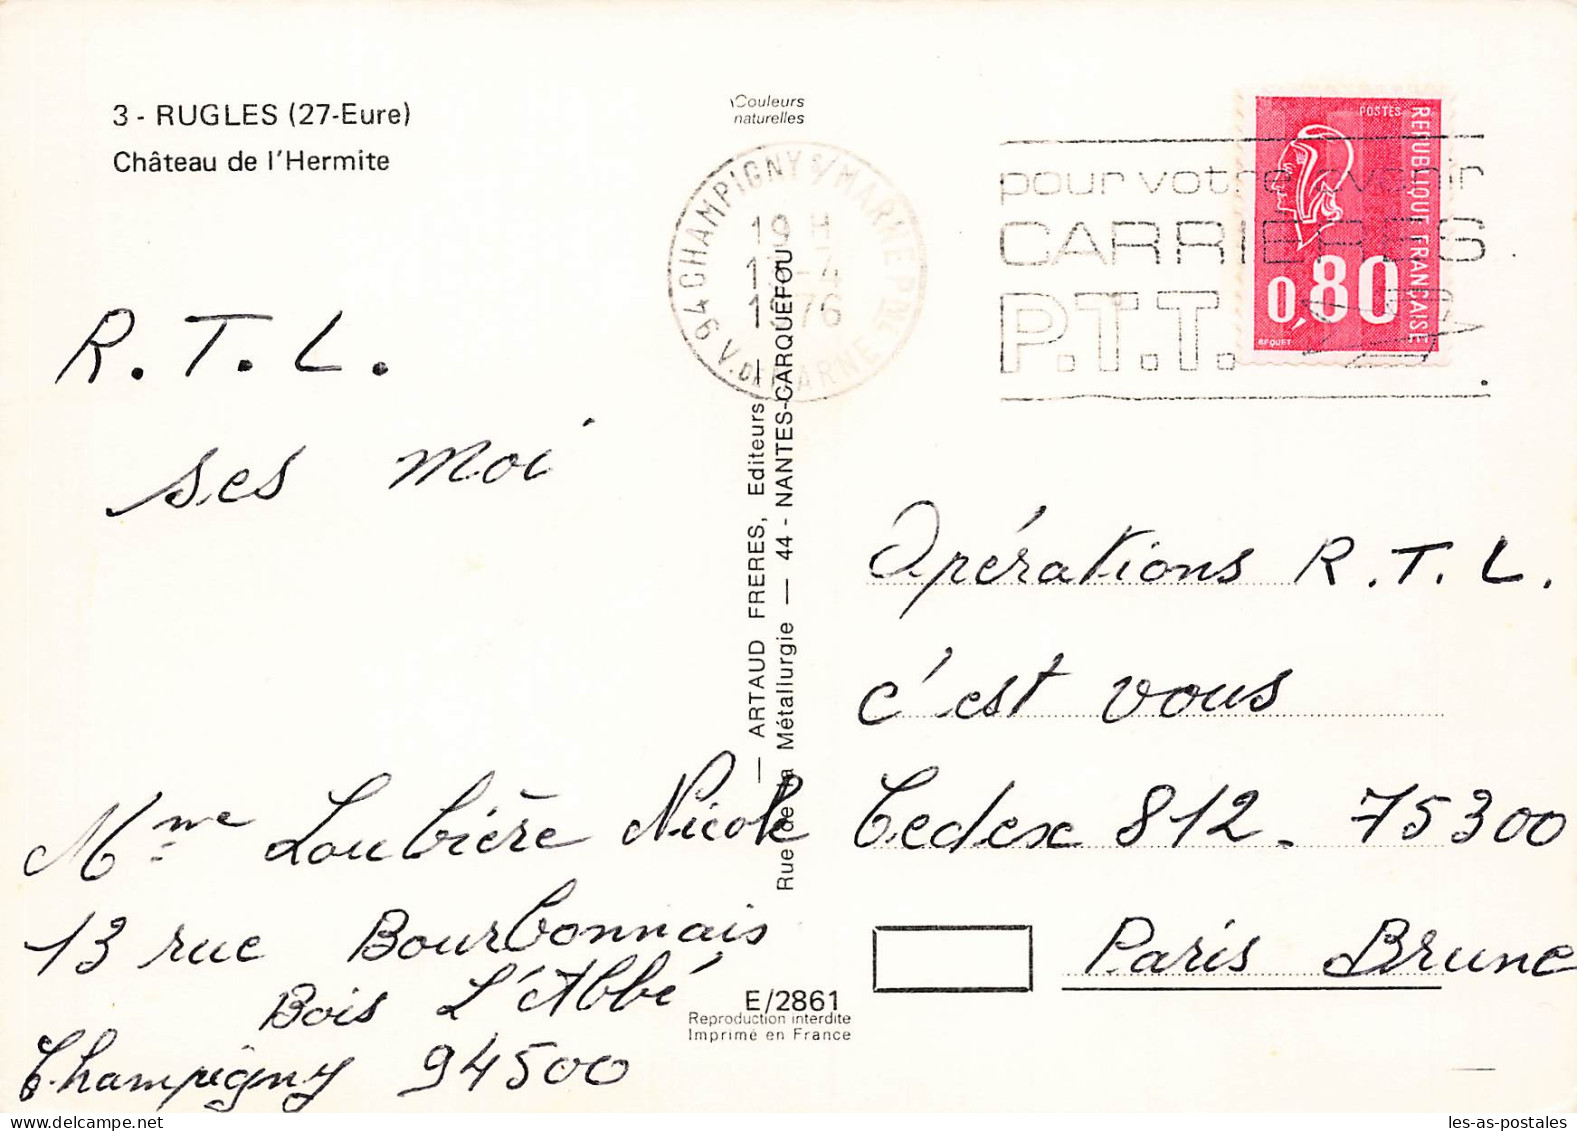 3 - RUGLES (27-Eure)
Château de l'Hermite
Couleurs
naturelles
94 CHAMPIGNY S/MARNE PPAL
V. DE MARNE
19 H
4
1976
pour votre avenir
CARRIERES
P.T.T.
POSTES
REPUBLIQUE FRANCAISE
0,80
BEQUET
R.T.L.
ses moi
— ARTAUD FRERES, Editeurs —
Rue de la Métallurgie — 44 - NANTES-CARQUEFOU
Opérations R.T.L.
c'est vous
Cedex 812 - 75300
Paris Brune
Mme Loubière Nicole
13 rue Bourbonnais
Bois L'Abbé
Champigny 94500
E/2861
Reproduction interdite
Imprimé en France
les-as-postales